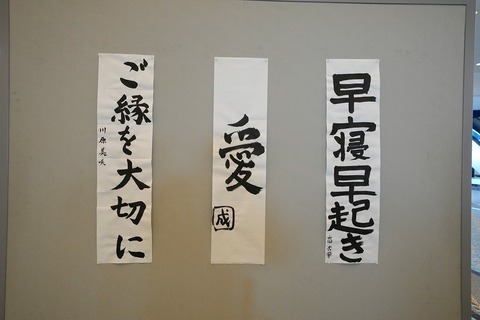 早寝早起き
愛
成
ご縁を大切に
川原美咲